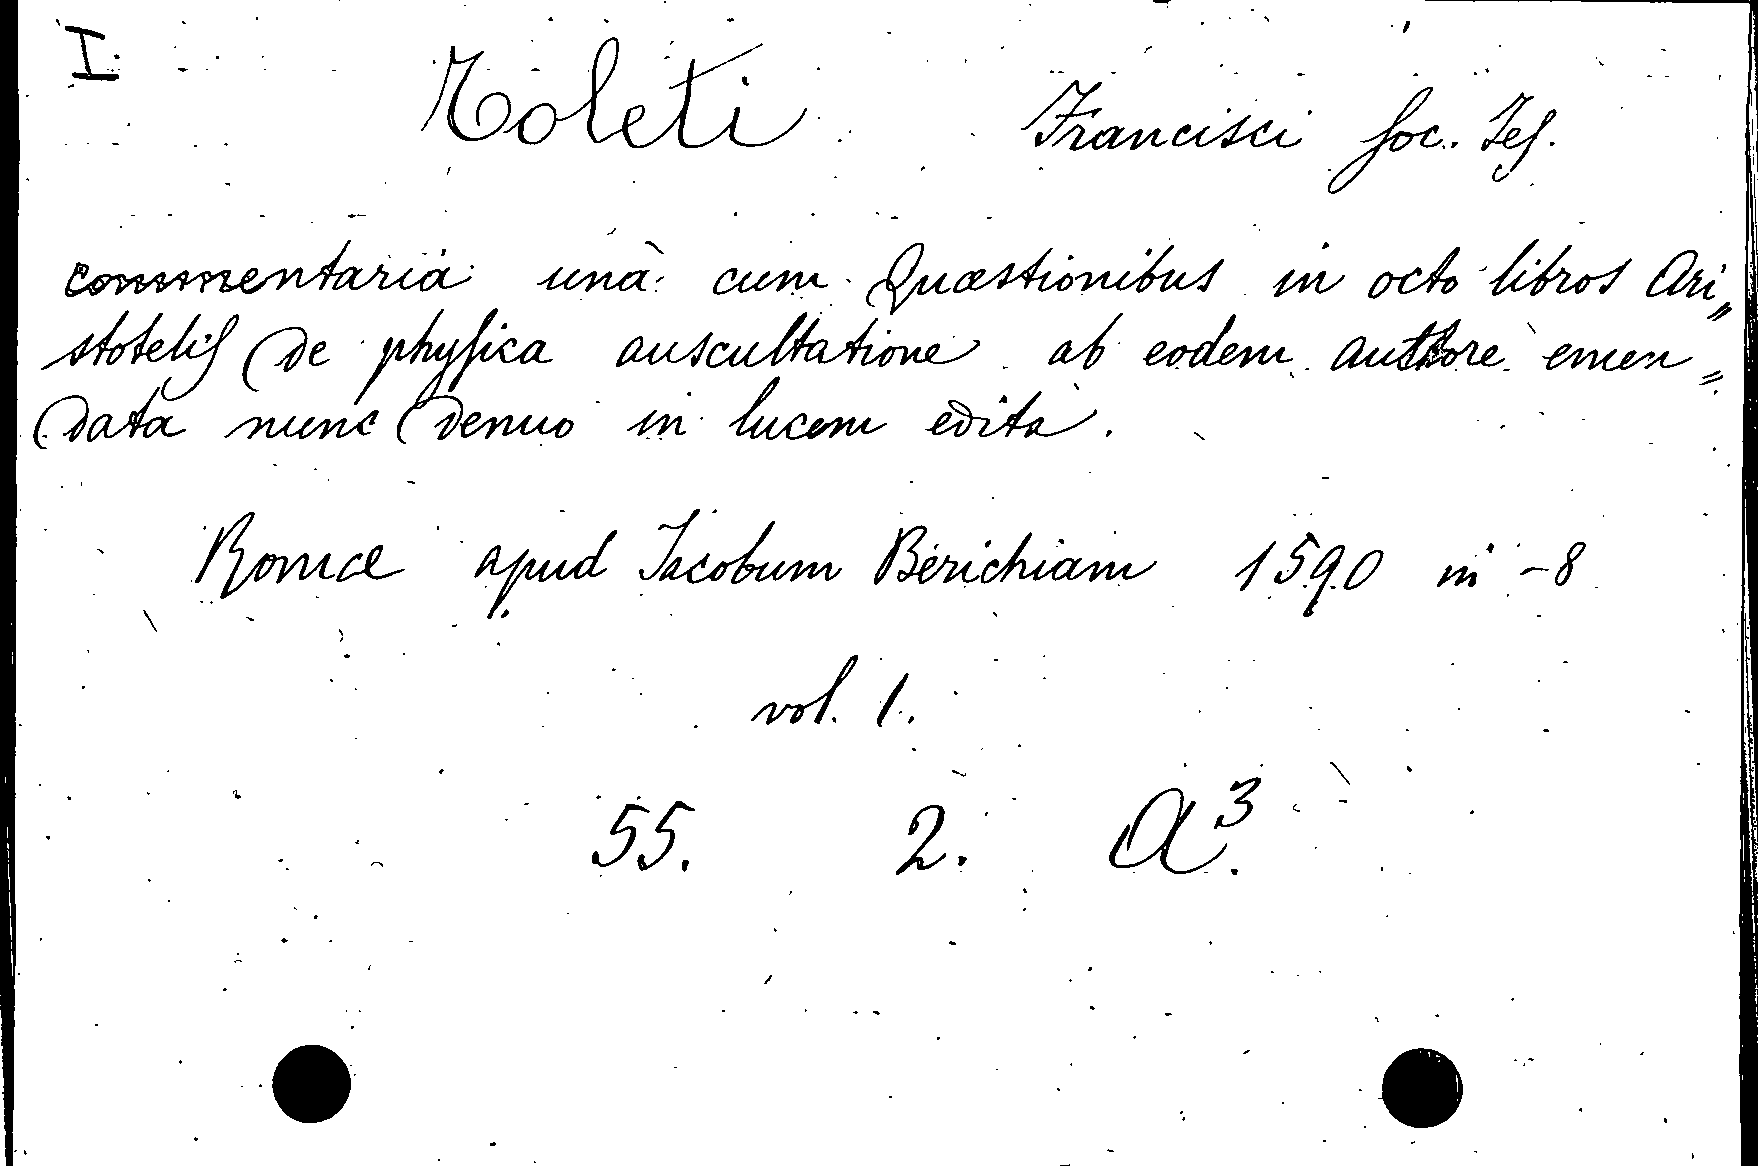 I.
Toleti Francisci Soc. Jes.
commentaria unà cum Quæstionibus in octo libros Ari„
stotelis de physica auscultatione ab eodem authore emen„
data nunc denuo in lucem edita.
Romæ apud Jacobum Berichiam 1590 in -8
vol. 1.
55. 2. A³.